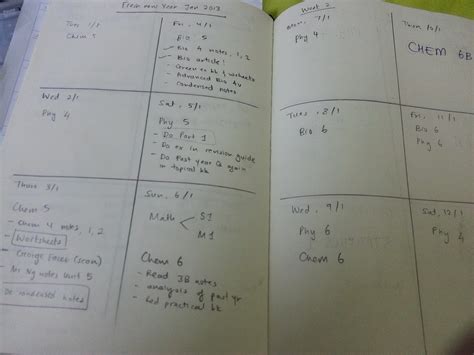 From new Year Jan 2013
Tues 1/1
Chem 5
Wed 2/1
Phy 4
Thurs 3/1
Chem 5
- Chem 4 notes, 1, 2
- Worksheets
- George Facer (scan)
notes Unit 5
Fri, 4/1
Bio 5
Bio 4 notes, 1, 2
Bio article!
- Green ex bk & worksheets
- Advanced Bio 4u
- Condensed notes
Sat, 5/1
Phy 5
- Do Part 1
- Do ex in revision guide
- Do Past year Q again
in topical bk
Sun, 6/1
Math
S1
M1
Chem 6
- Read JB notes
- analysis of past yr
- Red practical bk
Week 2
Mon, 7/1
Phy 4
Tues, 8/1
Bio 6
Wed, 9/1
Phy 6
Chem 6
Thurs 10/1
CHEM 6B
Fri, 11/1
Bio 6
Phy 6
Sat, 12/1
Phy 4